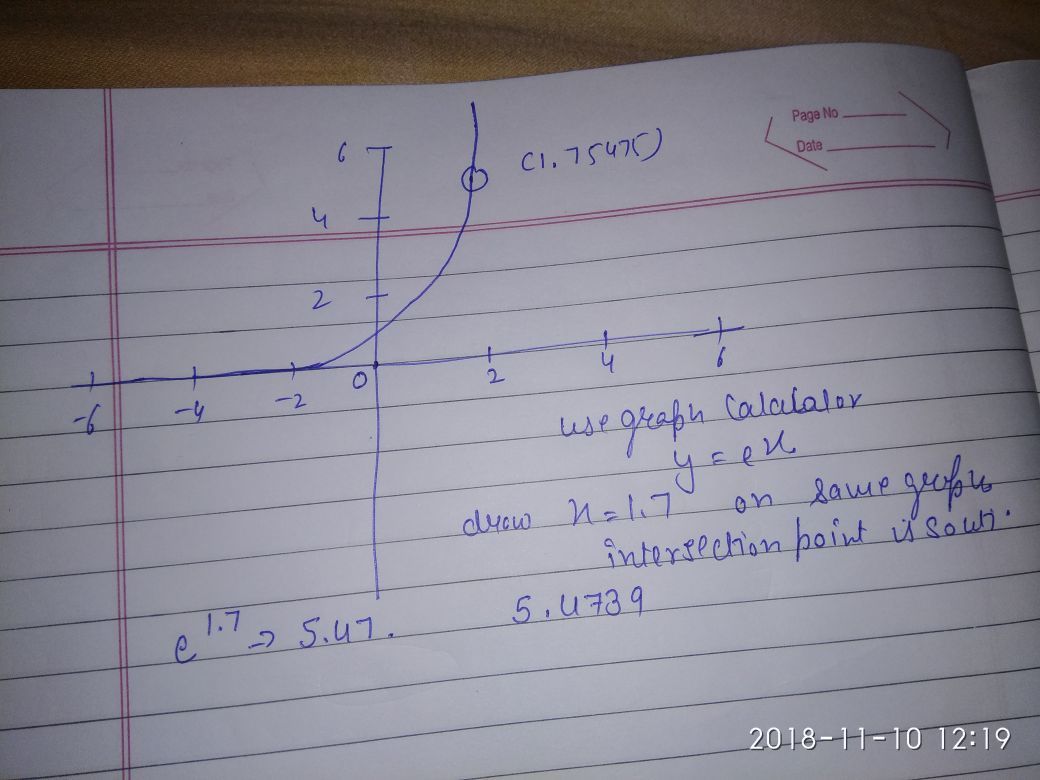 Page No
Date
6
(1.75475)
4
2
-6 -4 -2 0 2 4 6
use graph Calculalor
y = e^x
draw x = 1.7 on same graph
intersection point is souti.
e^1.7 → 5.47.
5.4739
2018-11-10 12:19